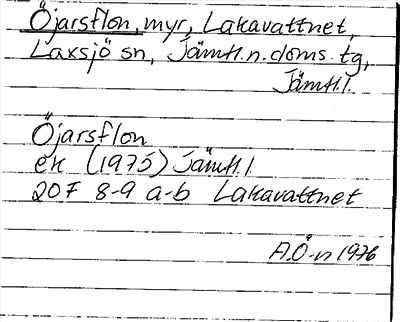 Öjarsflon, myr, Lakavattnet,
Laxsjö sn, Jämtl.n.doms.tg,
Jämtl.l.
Öjarsflon
ek (1975) Jämtl.l
20F 8-9 a-b Lakavattnet
A.Ö-n 1976